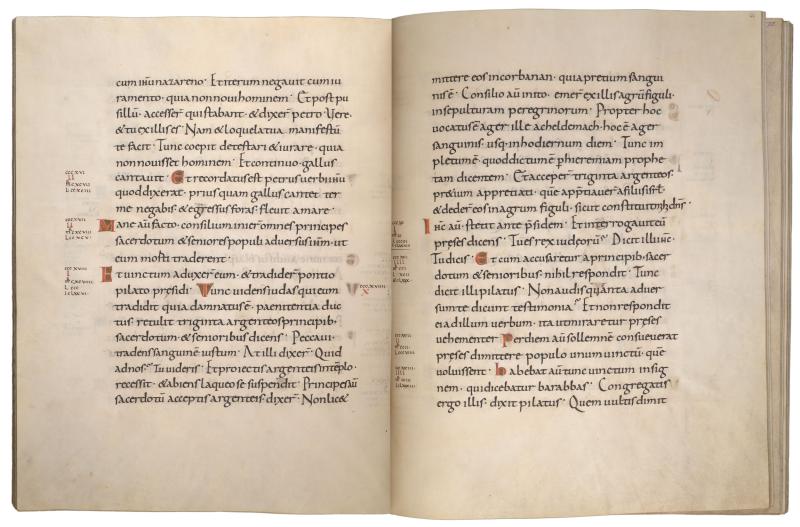 cum ihū nazareno· Et iterum negavit cum iu
ramento· quia non novi hominem· Et post pu
sillū· accesser qui stabant· & dixer petro· Vere·
& tu ex illis es· Nam & loquela tua manifestū
te facit· Tunc coepit detestari & iurare· quia
non novisset hominem· Et continuo gallus
cantavit· Et recordatus est petrus verbi ihū
quod dixerat· prius quam gallus cantet ter
me negabis· & egressus foras· flevit amare·
Mane aū facto· consilium inier omnes principes
sacerdotum & seniores populi adversus ihm̄· ut
eum morti traderent·
Et vinctum adduxer eum· & tradider pontio
pilato presidi· Tunc videns iudas qui eum
tradidit quia damnatus ē· paenitentia duc
tus· retulit triginta argenteos principib·
sacerdotum· & senioribus dicens· Peccavi·
tradens sanguinē iustum· At illi dixer· Quid
ad nos? Tu videris· Et proiectis argenteis in tēplo·
recessit· & abiens laqueo se suspendit· Principes aū
sacerdotū acceptis argenteis· dixer· Non lic&
mittere eos in corbanan· quia pretium sangui
nis ē· Consilio aū inito· emer ex illis agrū figuli·
in sepulturam peregrinorum· Propter hoc
vocatus ē ager ille acheldemach· hoc ē ager
sanguinis· usq· in hodiernum diem· Tunc im
pletum ē· quod dictum ē p hieremiam prophe
tam dicentem· Et acceper triginta argenteos·
pretium appretiati· que apptiaver a filiis isrl·
& deder eos in agrum figuli· sicut constituit m dn̄s·
Ihc aū· stetit ante psidem· Et interrogavit eū
preses dicens· Tu es rex iudeorū? Dicit illi ihc·
Tu dicis· Et cum accusaretur a principib· sacer
dotum & senioribus· nihil respondit· Tunc
dicit illi pilatus· Non audis quanta adver
sum te dicunt testimonia? Et non respondit
ei ad illum verbum· ita ut miraretur preses
vehementer· Per diem aū sollemnē consueverat
preses dimittere populo unum vinctū· quē
voluissent· Habebat aū tunc vinctum insig
nem· qui dicebatur barabbas· Congregatis
ergo illis· dixit pilatus· Quem vultis dimit